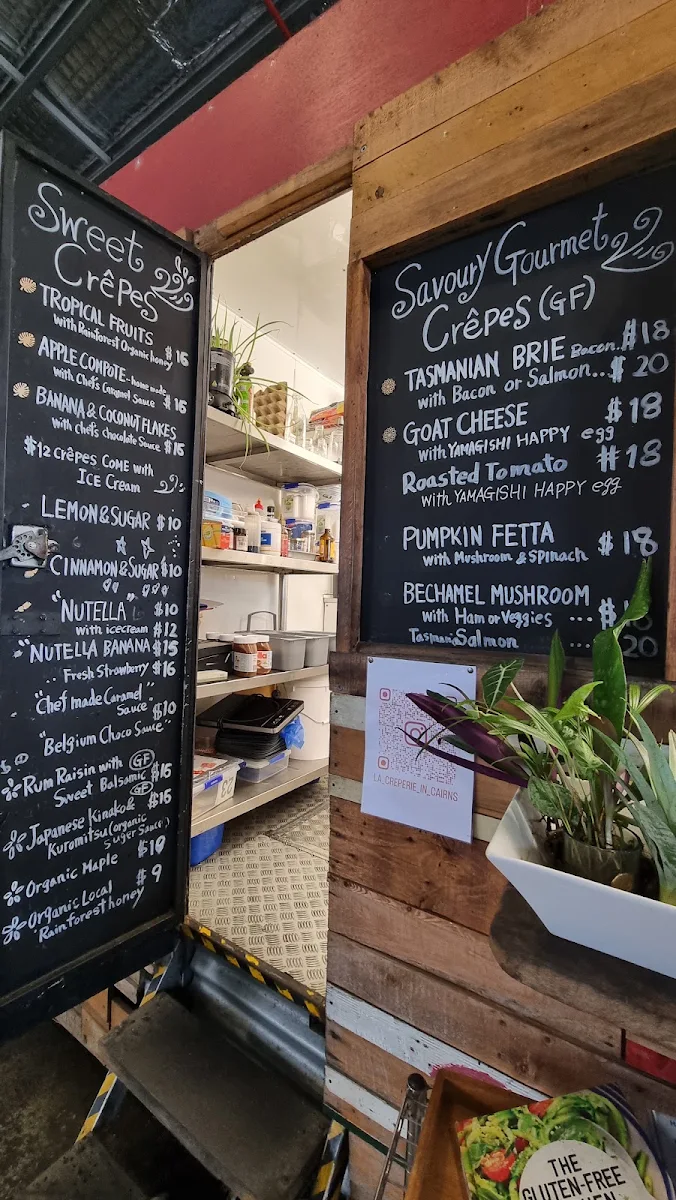 Sweet
Crêpes
TROPICAL FRUITS
with Rainforest Organic honey $16
APPLE COMPOTE - home made
with Chef's Caramel Sauce $16
BANANA & COCONUT FLAKES
with chef's chocolate Sauce $15
$12 crêpes COME with
ICE Cream
LEMON & SUGAR $10
CINNAMON & SUGAR $10
"NUTELLA $10
with icecream $12
"NUTELLA BANANA $15
Fresh Strawberry $16
"Chef made Caramel
Sauce" $10
"Belgium Choco Sauce"
Rum Raisin with GF
Sweet Balsamic $16
Japanese Kinako & GF $16
Kuromitsu (organic
Suger Sauce)
Organic Maple $10
Organic Local $9
Rainforest honey
Savoury Gourmet
Crêpes (GF)
TASMANIAN BRIE Bacon.. $18
with Bacon or Salmon... $20
GOAT CHEESE $18
with YAMAGISHI HAPPY egg
Roasted Tomato $18
with YAMAGISHI HAPPY egg
PUMPKIN FETTA
with Mushroom & SPINach $18
BECHAMEL MUSHROOM
with Ham or Veggies ....
Salmon 20
LA_CREPERIE_IN_CAIRNS
THE
GLUTEN-FREE